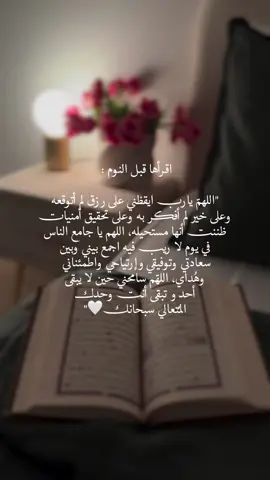 اقرأها قبل النوم :
"اللهمّ يارب ايقظني على رزق لم أتوقعه
وعلى خير لم أفكر به وعلى تحقيق أمنيات
ظننت أنها مستحيله، اللهم يا جامع الناس
في يوم لا ريب فيه اجمع بيني وبين
سعادتي وتوفيقي وإرتياحي واطمئناني
وهُداي، اللهّم سامحني حين لا يبقى
أحد و تبقى أنت وحدك
المتعالي سبحانك🤍"